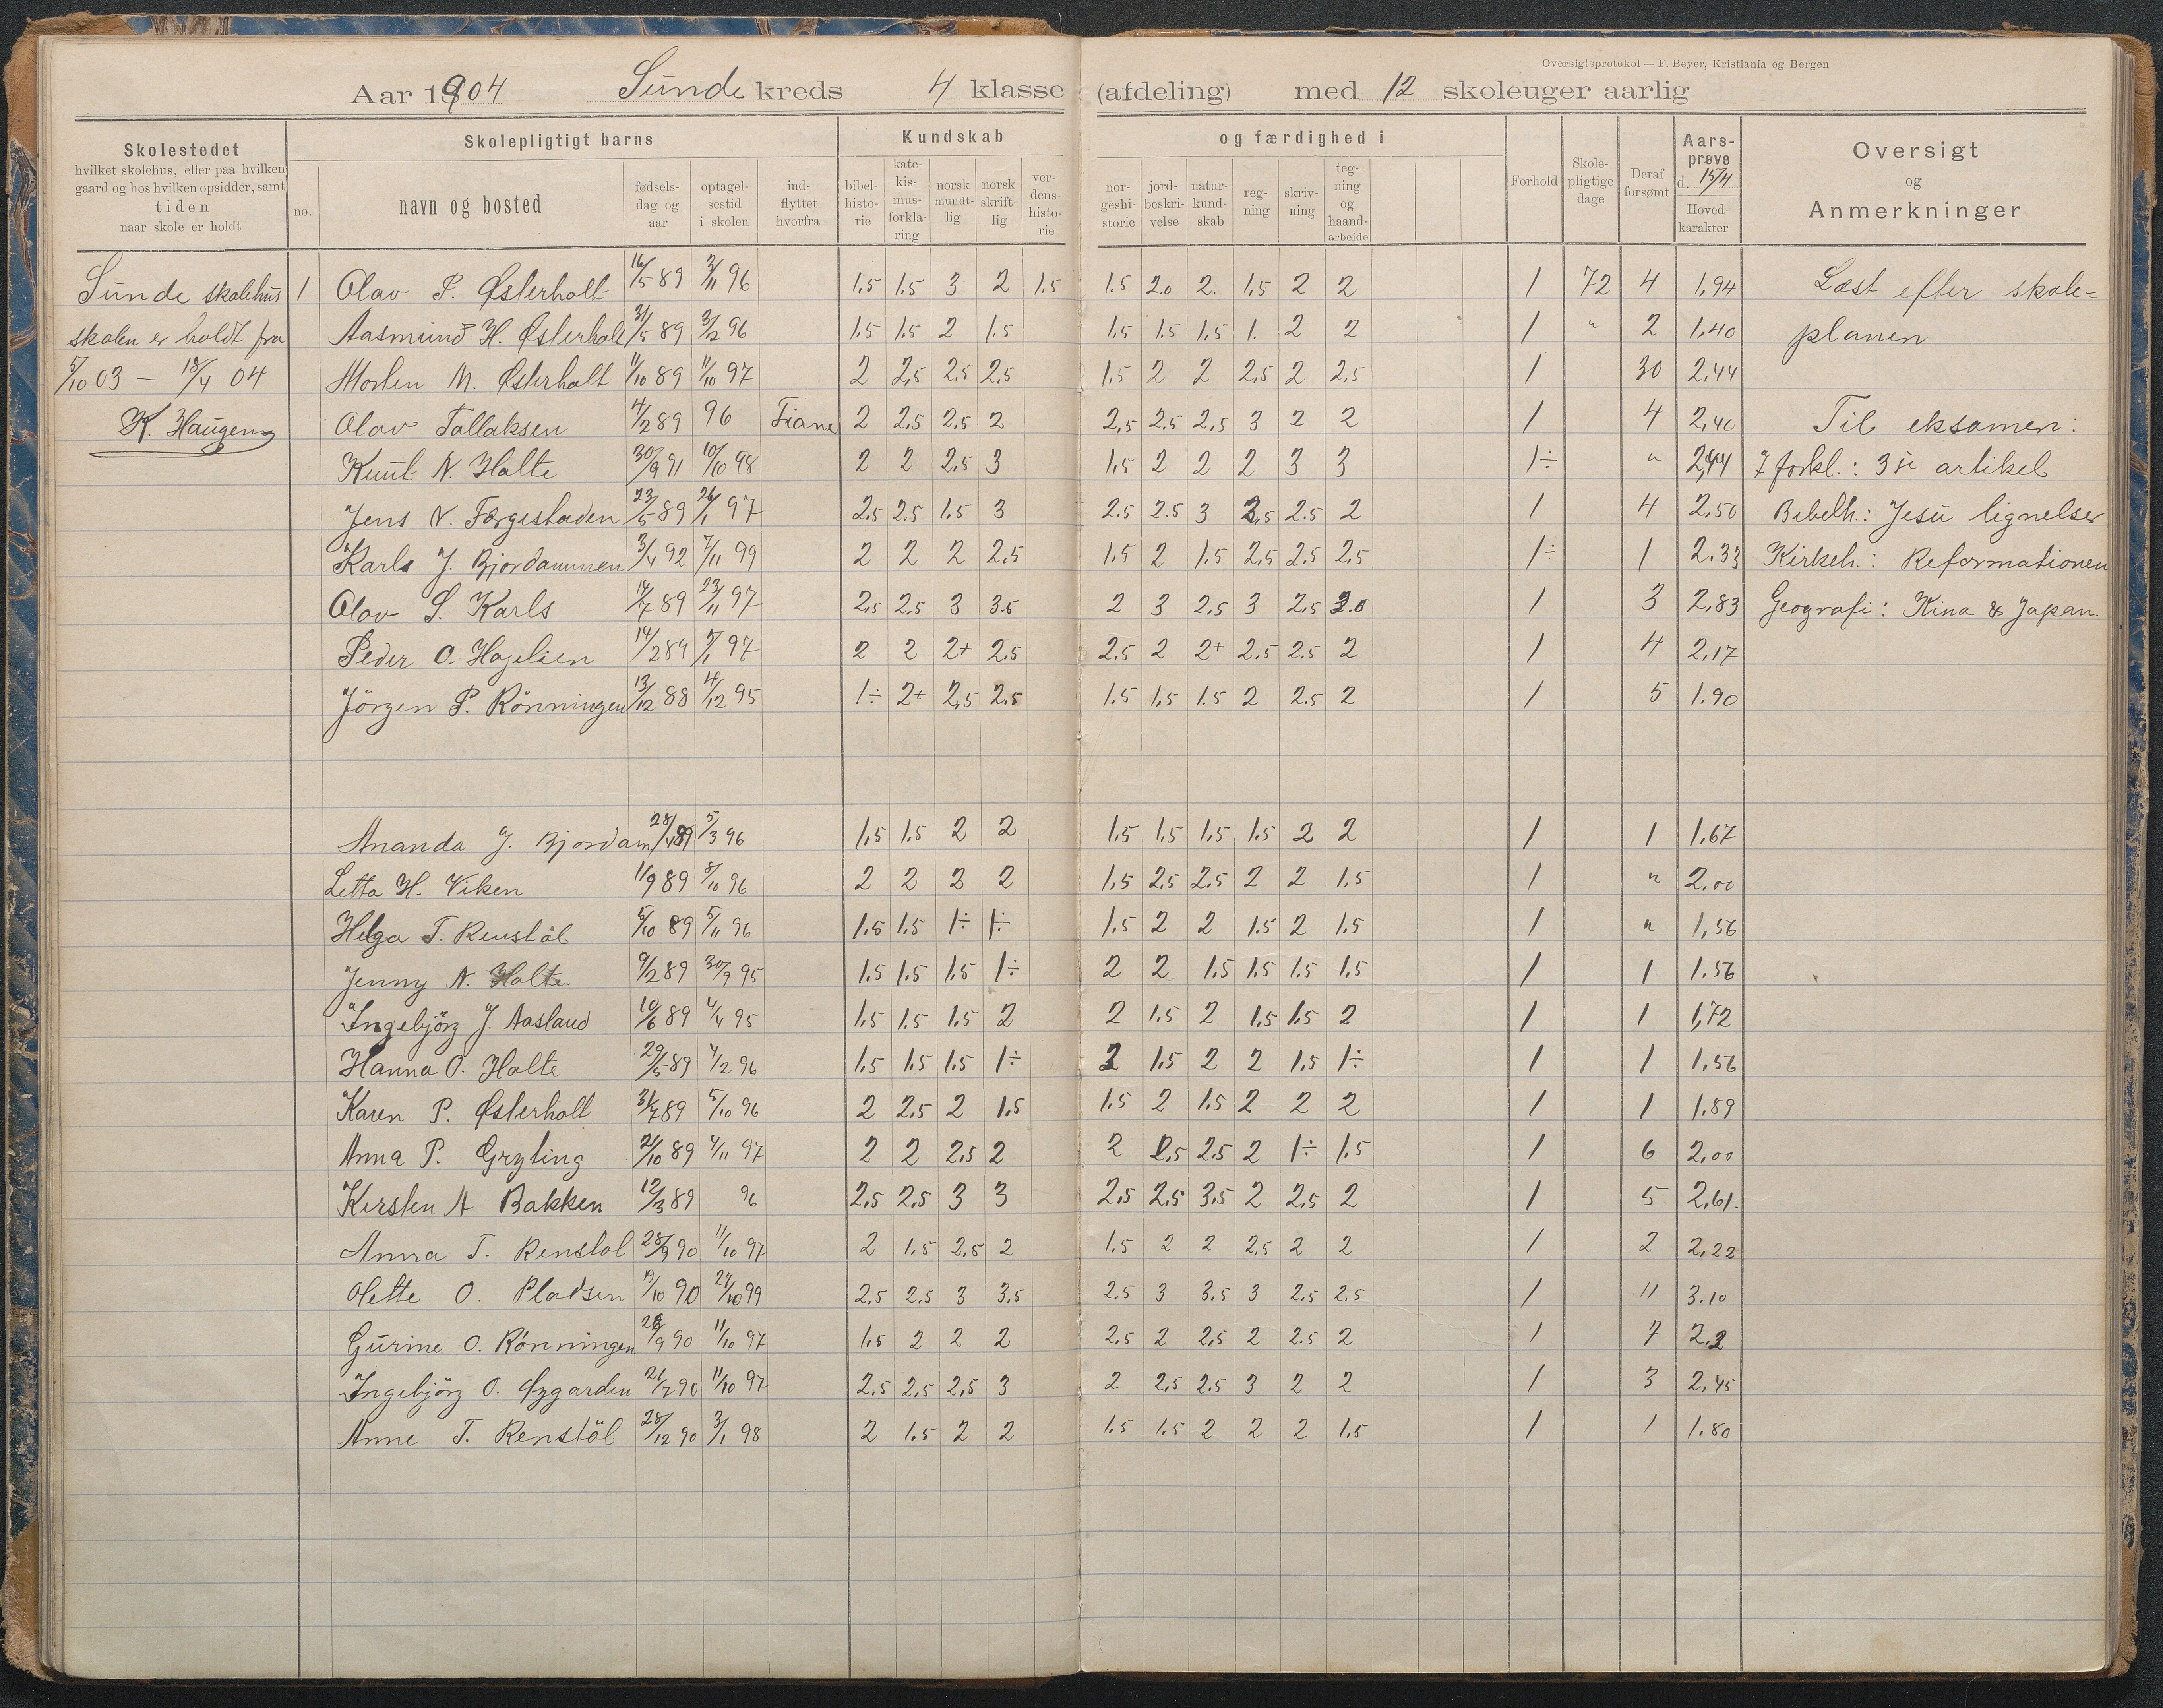 Oversigtsprotokol — F. Beyer, Kristiania og Bergen
Aar 1904 Sunde kreds 4 klasse (afdeling) med 12 skoleuger aarlig
Skolestedet
hvilket skolehus, eller paa hvilken
gaard og hos hvilken opsidder, samt
tiden
naar skole er holdt
no.
Skolepligtigt barns
navn og bosted
fødsels-
dag og
aar
optagel-
sestid
i skolen
ind-
flyttet
hvorfra
Kundskab
bibel-
histo-
rie
kate-
kis-
mus-
forkla-
ring
norsk
mundt-
lig
norsk
skrift-
lig
ver-
dens-
histo-
rie
og færdighed i
nor-
geshi-
storie
jord-
beskri-
velse
natur-
kund-
skab
reg-
ning
skriv-
ning
teg-
ning
og
haand-
arbeide
Forhold
Skole-
pligtige
dage
Deraf
forsømt
Aars-
prøve
d. 15/4
Hoved-
karakter
Oversigt
og
Anmerkninger
Sunde skolehus 1 Olav P. Østerholt 16/5 89 3/11 96 1.5 1.5 3 2 1.5 1.5 2.0 2. 1.5 2 2 1 72 4 1,94 Læst efter skole=
skolen er holdt fra Aasmund H. Østerholt 31/5 89 3/2 96 1.5 1.5 2 1.5 1.5 1.5 1.5 1. 2 2 1 " 2 1,40 planen
5/10 03 — 18/4 04 Morten M. Østerholt 11/10 89 11/10 97 2 2,5 2.5 2,5 1.5 2 2 2,5 2 2,5 1 30 2,44
K. Haugen Olav Tallaksen 4/2 89 96 Fiane 2 2,5 2,5 2 2,5 2.5 2,5 3 2 2 1 4 2,40 Til eksamen:
Knut N. Holte 30/9 91 10/10 98 2 2 2.5 3 1.5 2 2 2 3 3 1÷ " 2,44 forkl.: 3die artikel
Jens N. Førgestaden 23/5 89 26/1 97 2.5 2.5 1.5 3 2.5 2.5 3 2,5 2.5 2 1 4 2.50 Bibelh.: Jesu lignelser
Karls J. Bjordammen 3/4 92 7/11 99 2 2 2 2,5 1.5 2 1.5 2,5 2.5 2,5 1÷ 1 2.33 Kirkeh.: Reformationen
Olav S. Karls 14/7 89 23/11 97 2,5 2,5 3 3.5 2 3 2,5 3 2,5 3.0 1 3 2,83 Geografi: Kina & Japan.
Peder O. Hagelien 14/2 89 7/1 97 2 2 2+ 2.5 2.5 2 2+ 2.5 2.5 2 1 4 2,17
Jörgen P. Rönningen 13/12 88 4/12 95 1÷ 2+ 2,5 2.5 1.5 1,5 1.5 2 2.5 2 1 5 1.90
Ananda J. Bjordam 28/4 89 5/3 96 1,5 1.5 2 2 1.5 1.5 1.5 1.5 2 2 1 1 1.67
Letta H. Viken 11/9 89 8/10 96 2 2 2 2 1.5 2.5 2.5 2 2 1.5 1 " 2.00
Helga T. Renstöl 5/10 89 5/11 96 1.5 1.5 1÷ 1÷ 1.5 2 2 1.5 2 1.5 1 " 1,56
Jenny N. Holte. 9/2 89 30/9 95 1.5 1.5 1.5 1÷ 2 2 1.5 1.5 1.5 1.5 1 1 1.56
Ingebjörg J. Aasland 10/6 89 4/4 95 1.5 1.5 1.5 2 2 1.5 2 1.5 1.5 2 1 1 1,72
Hanna O. Holte 29/5 89 4/2 96 1.5 1.5 1.5 1÷ 2 1.5 2 2 1.5 1÷ 1 1 1,56
Karen P. Østerholt 31/7 89 5/10 96 2 2.5 2 1.5 1.5 2 1.5 2 2 2 1 1 1.89
Anna P. Gryting 21/10 89 4/11 97 2 2 2.5 2 2 2,5 2.5 2 1÷ 1.5 1 6 2,00
Kersten A Bakken 12/3 89 96 2.5 2.5 3 3 2.5 2.5 3.5 2 2,5 2 1 5 2,61.
Anna T. Renstøl 28/9 90 11/10 97 2 1.5 2,5 2 1.5 2 2 2,5 2 2 1 2 2,22
Olette O. Pladsen 19/10 90 27/10 99 2.5 2.5 3 3,5 2.5 3 3.5 3 2.5 2.5 1 11 3.10
Gurine O. Rönningen 28/9 90 11/10 97 1.5 2 2 2 2.5 2 2,5 2 2.5 2 1 7 2,2
Ingebjörg O. Øygarden 21/7 90 11/10 97 2.5 2,5 2,5 3 2 2,5 2.5 3 2 2 1 3 2,45
Anne T. Renstöl 28/12 90 3/1 98 2 1.5 2 2 1.5 1.5 2 2 2 1.5 1 1 1.80